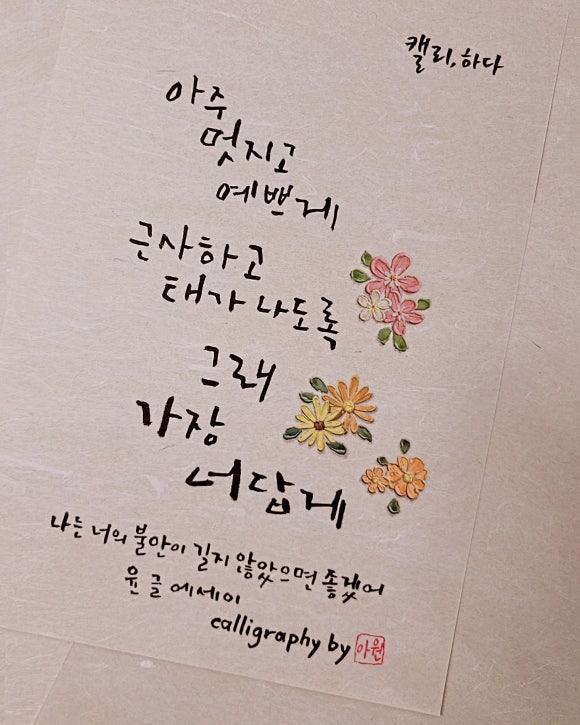 캘리,하다
아주
멋지고
예쁘게
근사하고
태가 나도록
그래
가장
너답게
나는 너의 불안이 길지 않았으면 좋겠어
윤 글 에세이
calligraphy by 아원